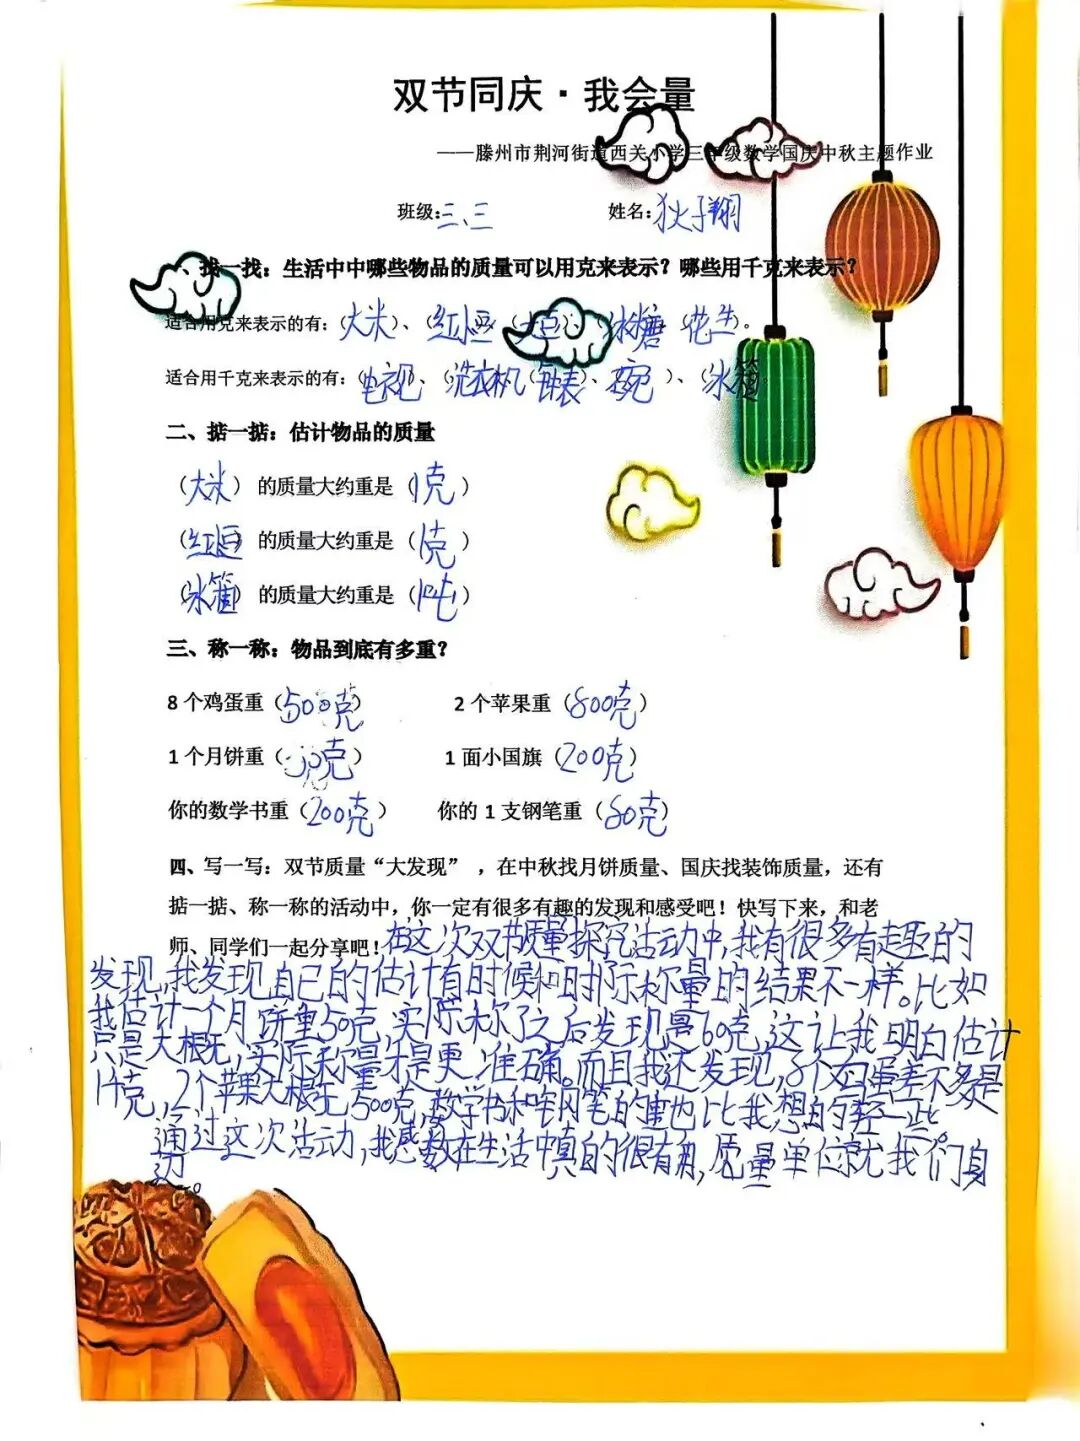 双节同庆·我会量
——滕州市荆河街道西关小学三年级数学国庆中秋主题作业
班级:三、三 姓名:狄子翔
找一找：生活中中哪些物品的质量可以用克来表示？哪些用千克来表示？
适合用克来表示的有:（大米）、（红小豆）、（大豆）、（冰糖）（花生）。
适合用千克来表示的有:（电视）、（洗衣机）（钟表）、（碗）、（冰箱）
二、掂一掂：估计物品的质量
（大米）的质量大约重是（1克）
（红小豆）的质量大约重是（1克）
（冰箱）的质量大约重是（1吨）
三、称一称：物品到底有多重？
8个鸡蛋重（500克） 2个苹果重（800克）
1个月饼重（克） 1面小国旗（200克）
你的数学书重（200克） 你的1支钢笔重（80克）
四、写一写：双节质量“大发现”，在中秋找月饼质量、国庆找装饰质量，还有
掂一掂、称一称的活动中，你一定有很多有趣的发现和感受吧！快写下来，和老
师、同学们一起分享吧！在这次双节质量探究活动中,我有很多有趣的
发现,我发现自己的估计有时候和实际称量的结果不一样。比如
我估计一个月饼重50克,实际称了之后发现是60克,这让我明白估计
只是大概,实际称量才是更准确。而且我还发现,8个鸡蛋差不多是
1千克,2个苹果大概500克,数学书和钢笔的重也比我想的轻一些。
通过这次活动,我感数在生活中真的很有用,质量单位就我们身
边。